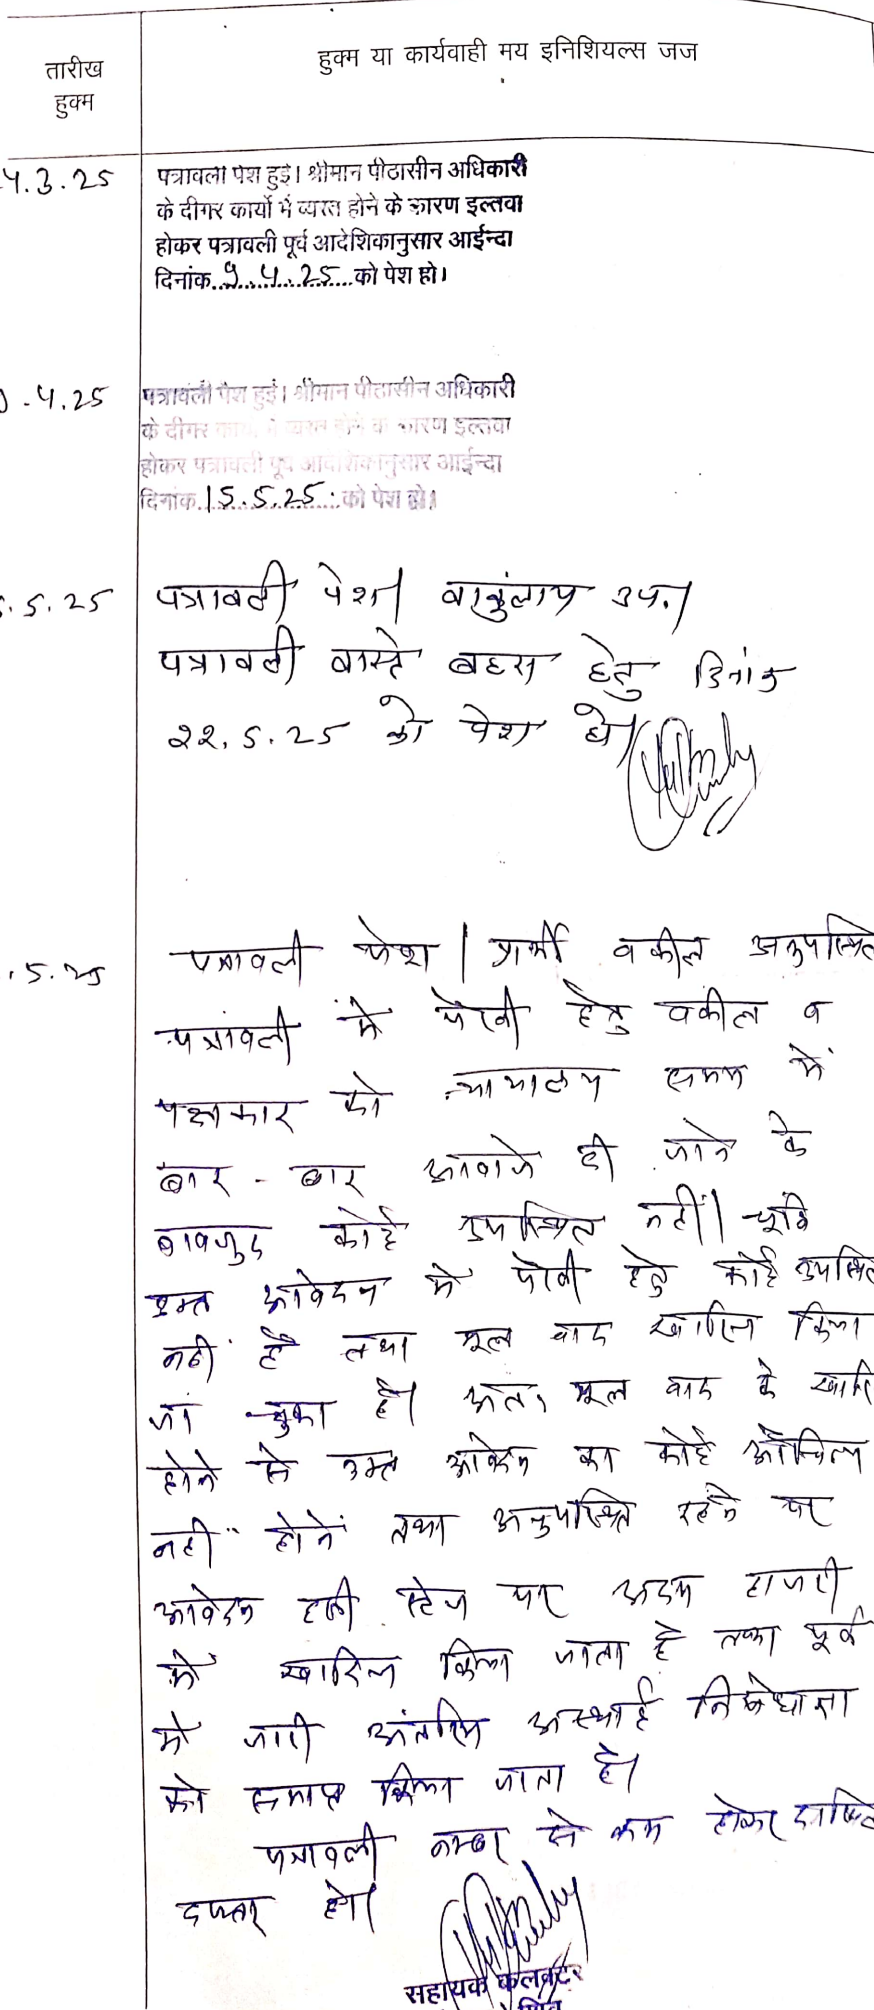 तारीख
हुक्म
हुक्म या कार्यवाही मय इनिशियल्स जज
4.3.25
पत्रावली पेश हुई। श्रीमान पीठासीन अधिकारी
के दीगर कार्यो में व्यस्त होने के कारण इल्तवा
होकर पत्रावली पूर्व आदेशिकानुसार आईन्दा
दिनांक 9.4.25 को पेश हो।
.4.25
पत्रावली पेश हुई। श्रीमान पीठासीन अधिकारी
के दीगर कार्यो में व्यस्त होने के कारण इल्तवा
होकर पत्रावली पूर्व आदेशिकानुसार आईन्दा
दिनांक 15.5.25 को पेश हो।
.5.25
पत्रावली पेश। वकुलाय उप.।
पत्रावली वास्ते बहस हेतु दिनांक
22.5.25 को पेश हो।
.5.25
पत्रावली पेश। प्रार्थी वकील अनुपस्थित
पत्रावली में पैरवी हेतु वकील व
पक्षकार को न्यायालय समय में
बार - बार आवाजे दी जाने के
बावजुद कोई उपस्थित नहीं। चूंकि
उक्त आवेदन में पैरवी हेतु कोई उपस्थित
नहीं है तथा मूल वाद खारिज किया
जा चुका है। अतः मूल वाद के खारि
होने से उक्त आवेदन का कोई औचित्य
नहीं होने तथा अनुपस्थित रहने पर
आवेदन इसी स्टेज पर अदम हाजरी
में खारिज किया जाता है तथा पूर्व
में जारी अंतरिम अस्थाई निषेधाज्ञा
को समाप्त किया जाता है।
पत्रावली नम्बर से कम होकर दाखिल
दफ्तर होवे।
सहायक कलक्टर